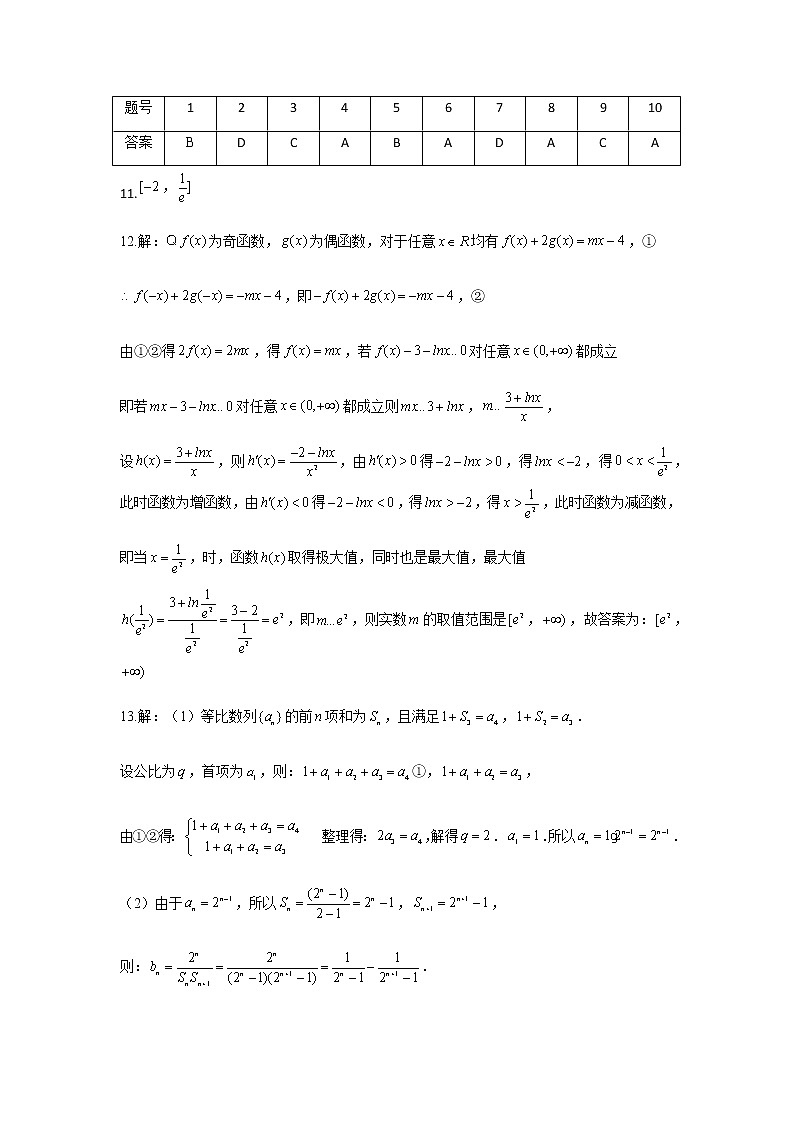 题号 1 2 3 4 5 6 7 8 9 10
答案 B D C A B A D A C A
11.[−2，1/e]
12.解：Q f(x)为奇函数，g(x)为偶函数，对于任意x∈R均有f(x)+2g(x)=mx−4，①
∴ f(−x)+2g(−x)=−mx−4，即−f(x)+2g(x)=−mx−4，②
由①②得2f(x)=2mx，得f(x)=mx，若f(x)−3−lnx..0对任意x∈(0,+∞)都成立
即若mx−3−lnx..0对任意x∈(0,+∞)都成立则mx..3+lnx，m..(3+lnx)/x，
设h(x)=(3+lnx)/x，则h′(x)=(−2−lnx)/x²，由h′(x)>0得−2−lnx>0，得lnx<−2，得0<x<1/e²，
此时函数为增函数，由h′(x)<0得−2−lnx<0，得lnx>−2，得x>1/e²，此时函数为减函数，
即当x=1/e²，时，函数h(x)取得极大值，同时也是最大值，最大值
h(1/e²)=(3+ln(1/e²))/(1/e²)=(3−2)/(1/e²)=e²，即m...e²，则实数m的取值范围是[e²，+∞)，故答案为：[e²，
+∞)
13.解：（1）等比数列{aₙ}的前n项和为Sₙ，且满足1+S₃=a₄，1+S₂=a₃．
设公比为q，首项为a₁，则：1+a₁+a₂+a₃=a₄①，1+a₁+a₂=a₃，
由①②得：{1+a₁+a₂+a₃=a₄ 1+a₁+a₂=a₃ 整理得：2a₃=a₄,解得q=2．a₁=1.所以aₙ=1g2ⁿ⁻¹=2ⁿ⁻¹．
（2）由于aₙ=2ⁿ⁻¹，所以Sₙ=(2ⁿ−1)/(2−1)=2ⁿ−1，Sₙ₊₁=2ⁿ⁺¹−1，
则：bₙ=2ⁿ/(SₙSₙ₊₁)=2ⁿ/((2ⁿ−1)(2ⁿ⁺¹−1))=1/(2ⁿ−1)−1/(2ⁿ⁺¹−1)．